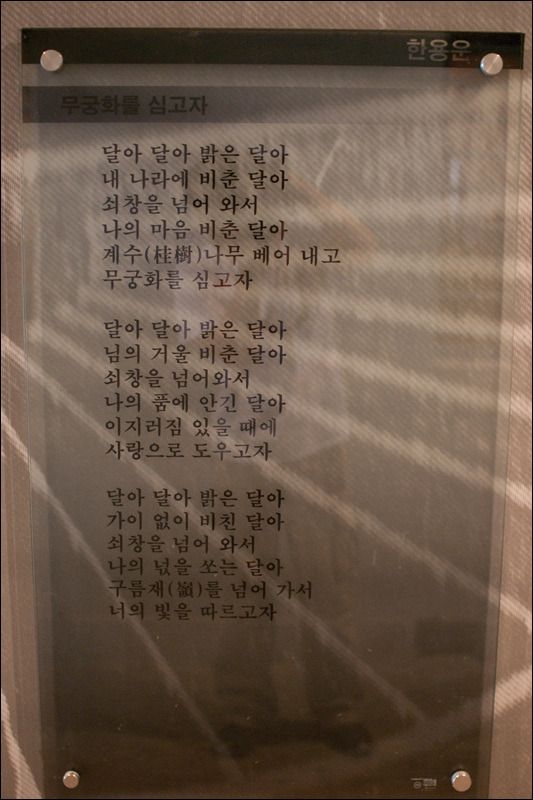 한용운
무궁화를 심고자
달아 달아 밝은 달아
내 나라에 비춘 달아
쇠창을 넘어 와서
나의 마음 비춘 달아
계수(桂樹)나무 베어 내고
무궁화를 심고자
달아 달아 밝은 달아
님의 거울 비춘 달아
쇠창을 넘어와서
나의 품에 안긴 달아
이지러짐 있을 때에
사랑으로 도우고자
달아 달아 밝은 달아
가이 없이 비친 달아
쇠창을 넘어 와서
나의 넋을 쏘는 달아
구름재(嶺)를 넘어 가서
너의 빛을 따르고자